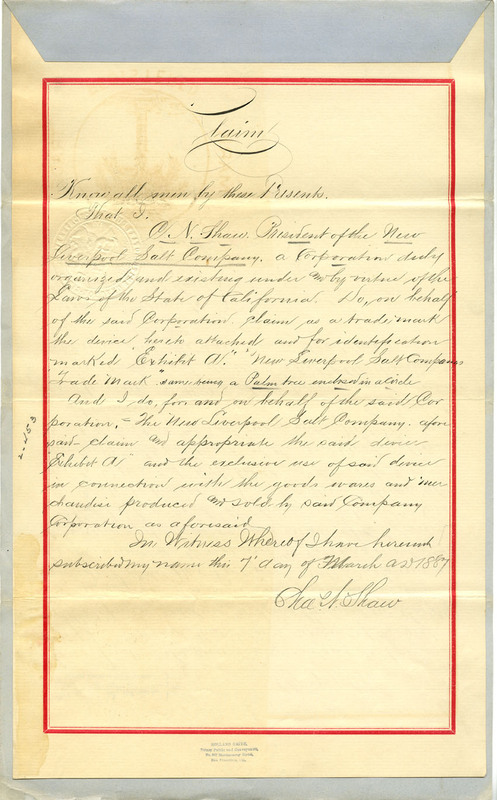 Claim
Know all men by these Presents.
That I.
O. N. Shaw. President of the New
Liverpool Salt Company. a Corporation duly
organized and existing under and by virtue of the
Laws of the State of California. Do, on behalf
of the said Corporation. claim as a trade mark
the device, hereto attached and for identification
marked "Exhibit A." "New Liverpool Salt Company
Trade Mark" same being a Palm tree enclosed in a circle
And I do, for, and on behalf of the said Cor
poration, "The New Liverpool Salt Company. afore
said claim and appropriate the said device
"Exhibit A" and the exclusive use of said device
in connection with the goods wares and mer
chandise produced and sold by said Company
Corporation as aforesaid
In Witness Whereof I have hereunto
subscribed my name this 7" day of March AD 1887
Shaw
2-453